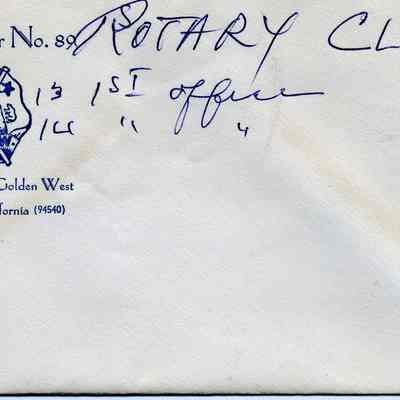 r No. 89 ROTARY CL
13 1ST office
14 " "
Golden West
fornia (94540)